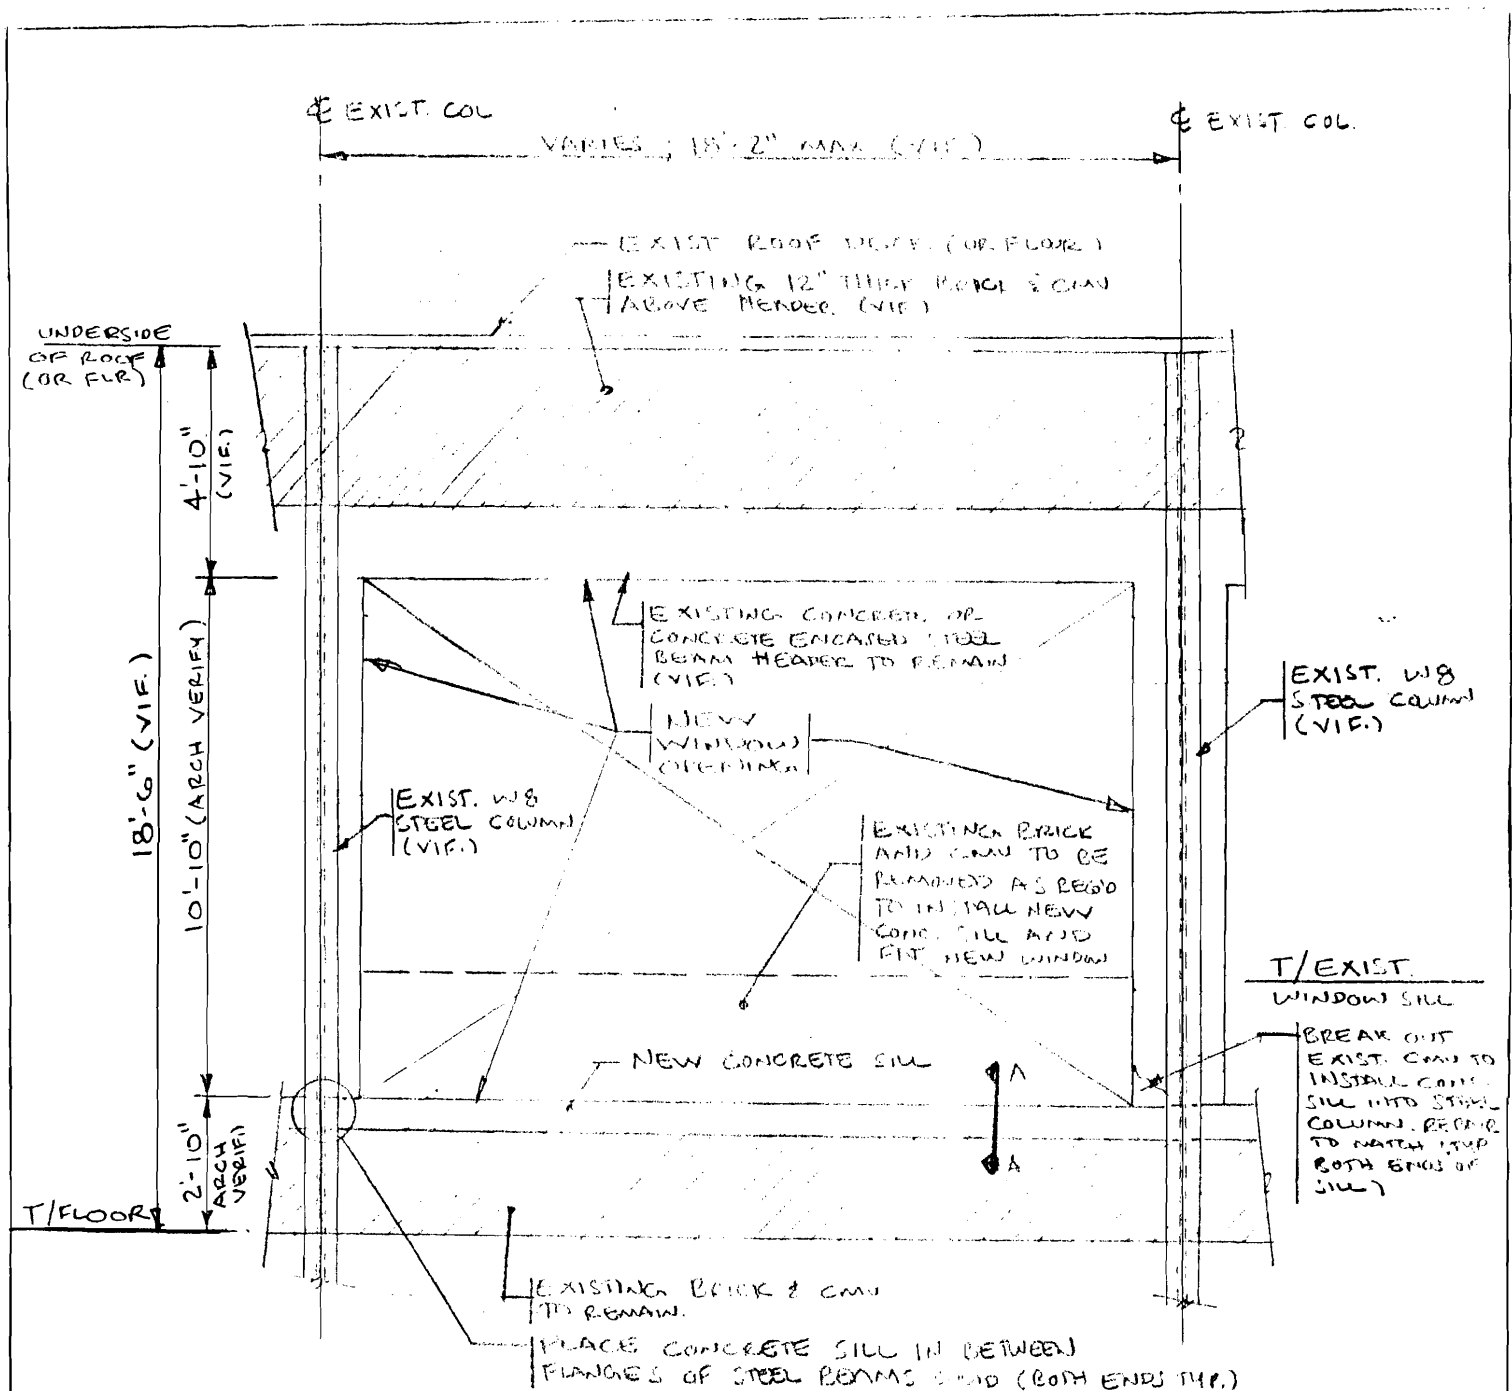 ℄ EXIST. COL
℄ EXIST. COL.
VARIES; 18'-2" MAX (VIF.)
EXIST ROOF DECK (OR FLOOR)
EXISTING 12" THICK BRICK & CMU
ABOVE HEADER (VIF.)
UNDERSIDE
OF ROOF
(OR FLR)
4'-10"
(VIF.)
18'-6" (VIF.)
10'-10" (ARCH VERIFY)
EXISTING CONCRETE OR
CONCRETE ENCASED STEEL
BEAM HEADER TO REMAIN
(VIF.)
NEW
WINDOW
OPENING
EXIST. W8
STEEL COLUMN
(VIF.)
EXIST. W8
STEEL COLUMN
(VIF.)
EXISTING BRICK
AND CMU TO BE
REMOVED AS REQ'D
TO INSTALL NEW
CONC. SILL AND
FIT NEW WINDOW
T/EXIST.
WINDOW SILL
BREAK OUT
EXIST. CMU TO
INSTALL CONC.
SILL INTO STEEL
COLUMN. REPAIR
TO MATCH (TYP
BOTH ENDS OF
SILL)
NEW CONCRETE SILL
A
A
2'-10"
ARCH
VERIF.)
T/FLOOR
EXISTING BRICK & CMU
TO REMAIN.
PLACE CONCRETE SILL IN BETWEEN
FLANGES OF STEEL BEAMS (BOTH ENDS TYP.)